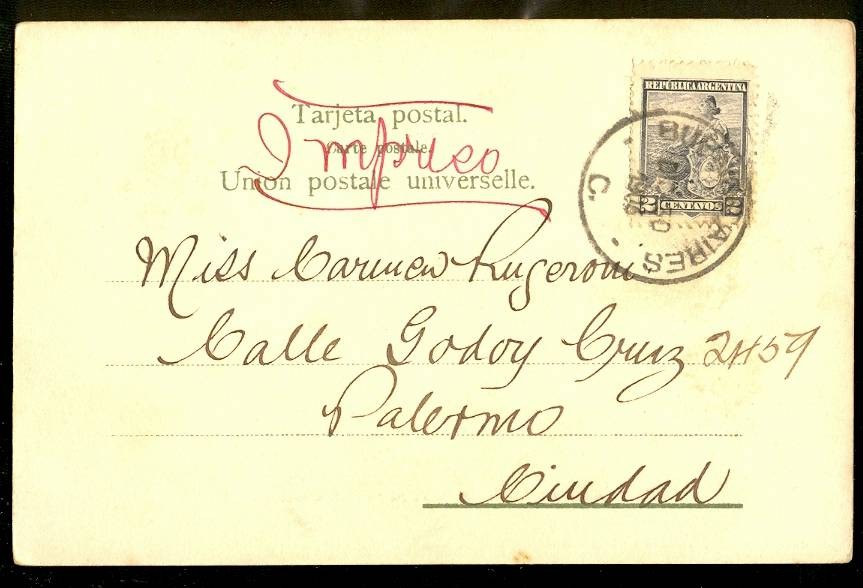 Tarjeta postal.
Carte postale.
Impreso
Union postale universelle.
REPUBLICA ARGENTINA
2 CENTAVOS 2
BUENOS AIRES
C.
Miss Carmen Rugeroni
Calle Godoy Cruz 2459
Palermo
Ciudad